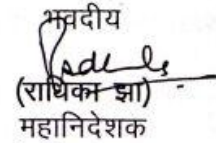 भवदीय
(राधिका झा)
महानिदेशक